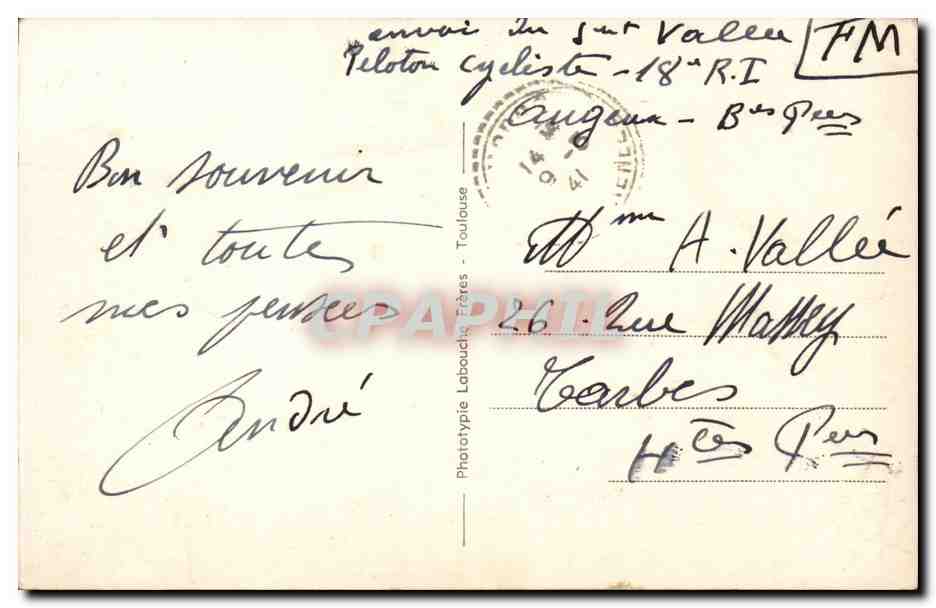 envoi du Sgt Vallée
FM
Peloton cycliste - 18e R.I
- Bses Pées
14
9 41
Bon souvenir
et toutes
mes pensées
André
Phototypie Labouche Frères - Toulouse
Mme A. Vallée
26 . Rue Massey
Tarbes
Htes Pées
CPAPHIL